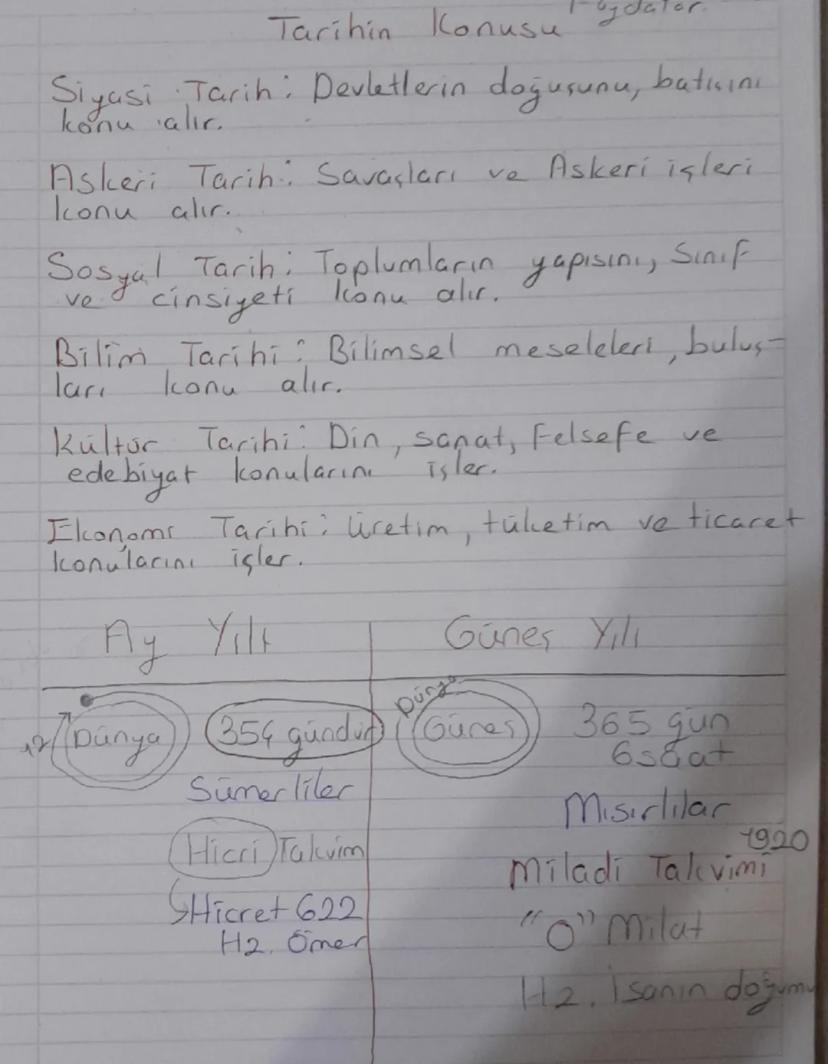 Tarihin Konusu
Siyasi Tarih: Devletlerin doğuşunu, batışını
konu alır.
Askeri Tarih: Savaşları ve Askeri işleri
konu alır.
Sosyal Tarih: Toplumların yapısını, Sınıf
ve cinsiyeti konu alır.
Bilim Tarihi: Bilimsel meseleleri, buluş-
ları konu alır.
Kültür Tarihi: Din, sanat, Felsefe ve
edebiyat konularını işler.
Ekonomi Tarihi: Üretim, tüketim ve ticaret
konularını işler.
Ay Yılı
Güneş Yılı
Dünya
354 gündür
Sümerliler
Hicri Takvim
Hicret 622
Hz. Ömer
Dünya
Güneş
365 gün
6 saat
Mısırlılar
1920
Miladi Takvimi
"0" Milat
Hz. İsanın doğumu